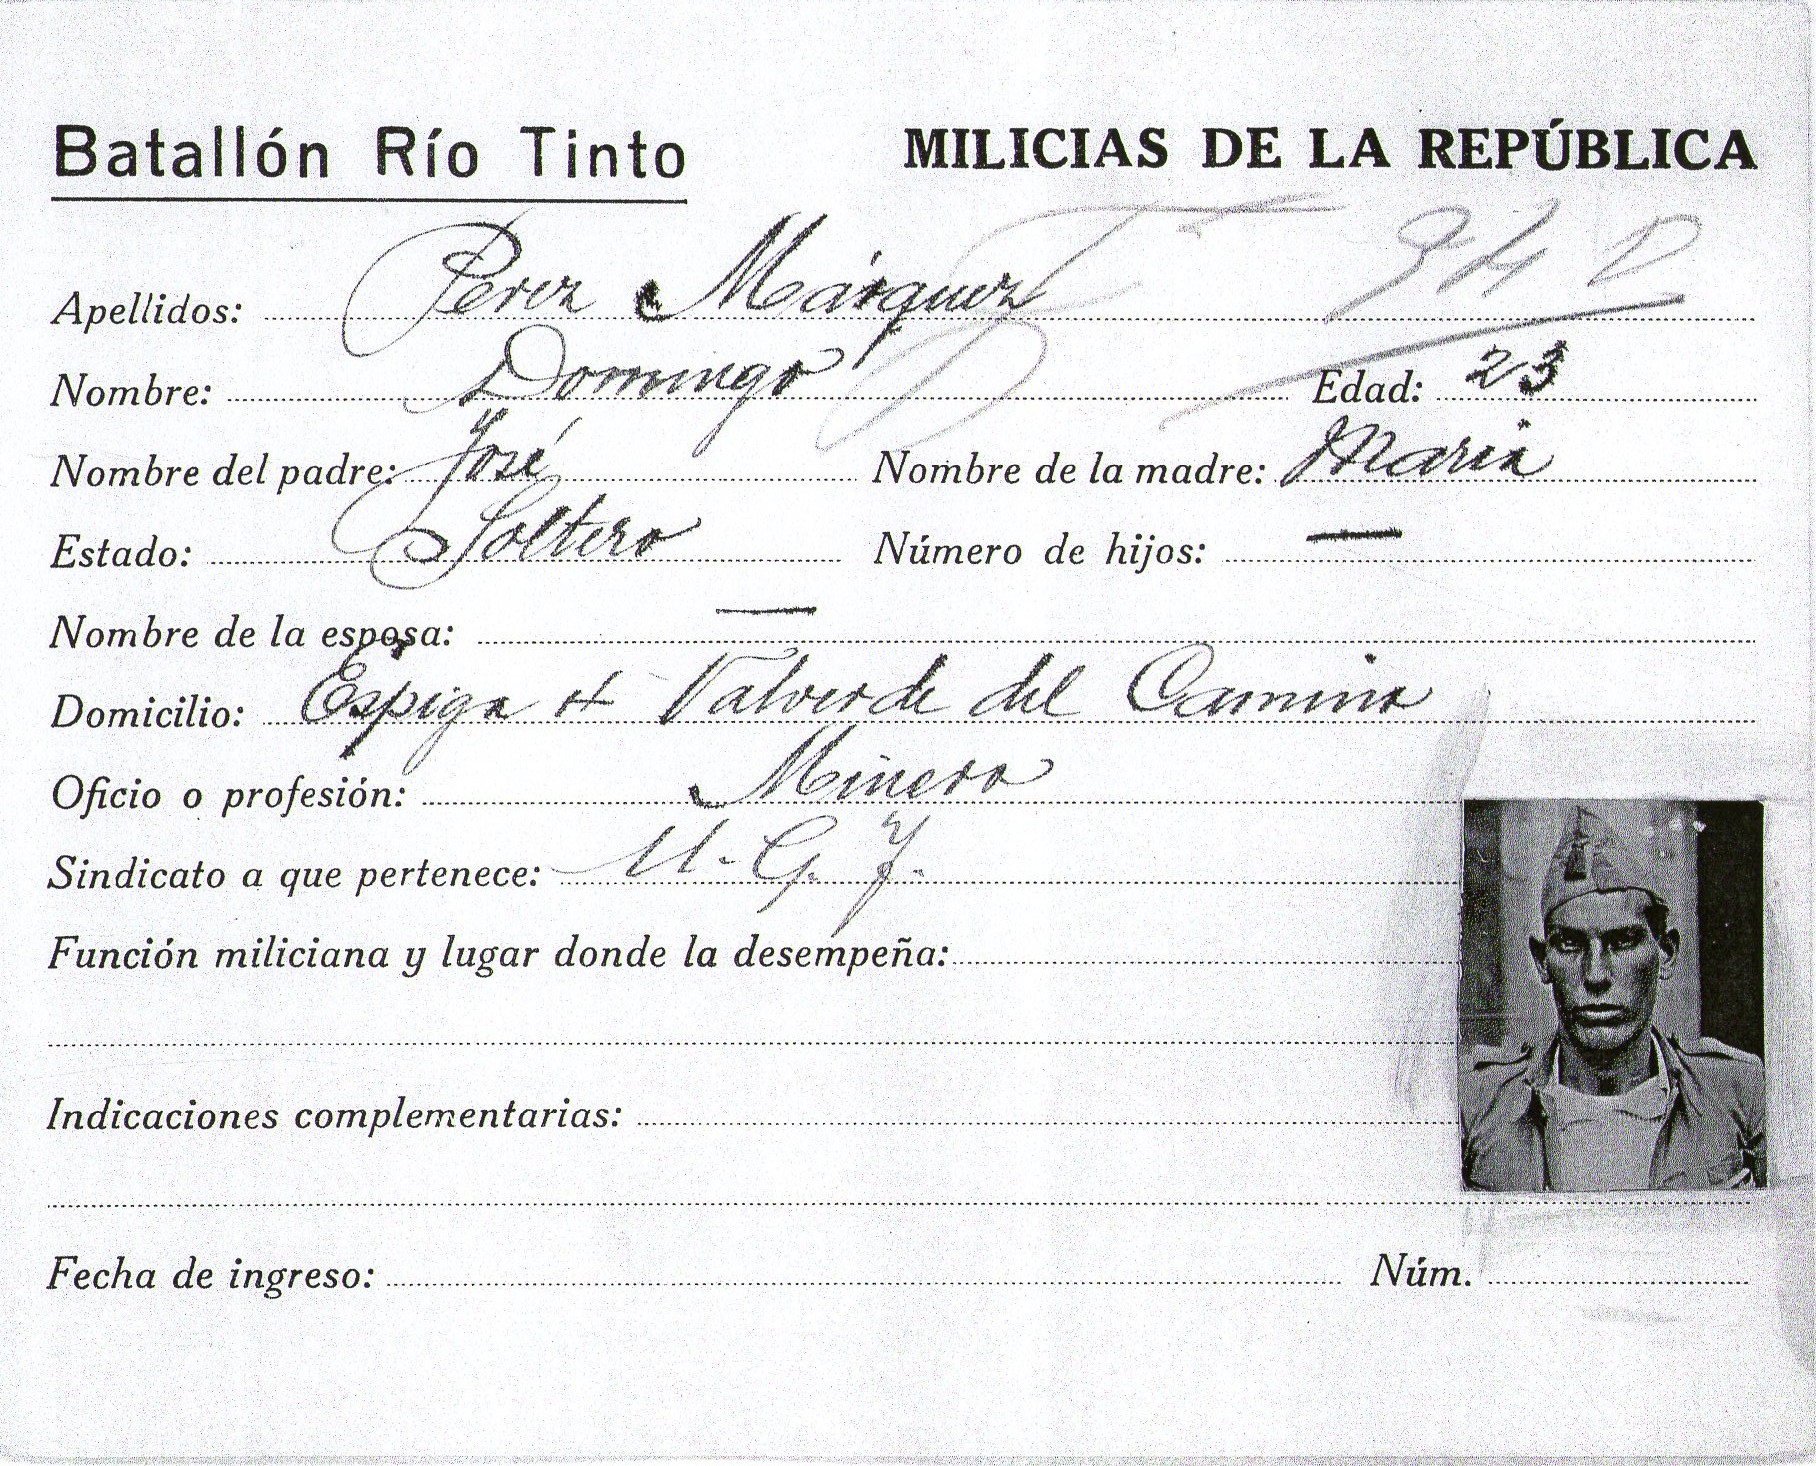 Batallón Río Tinto MILICIAS DE LA REPÚBLICA
Apellidos: Perez Márquez
Nombre: Domingo Edad: 23
Nombre del padre: José Nombre de la madre: Maria
Estado: Soltero Número de hijos: —
Nombre de la esposa: —
Domicilio: Espiga Valverde del Camino
Oficio o profesión: Minero
Sindicato a que pertenece: U. G. T.
Función miliciana y lugar donde la desempeña:
Indicaciones complementarias:
Fecha de ingreso: Núm.